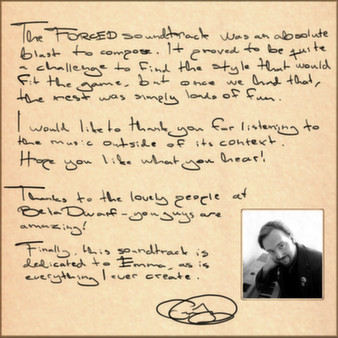 The FORCED soundtrack was an absolute
blast to compose. It proved to be quite
a challenge to find the style that would
fit the game, but once we had that,
the rest was simply loads of fun.
I would like to thank you for listening to
the music outside of its context.
Hope you like what you hear!
Thanks to the lovely people at
BetaDwarf - you guys are
amazing!
Finally, this soundtrack is
dedicated to Emma, as is
everything I ever create.